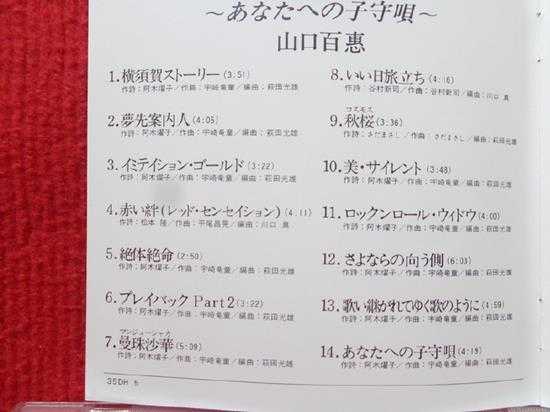 〜あなたへの子守唄〜
山口百惠
1.横須賀ストーリー(3:51)
作詩:阿木燿子/作曲:宇崎竜童/編曲:萩田光雄
2.夢先案内人(4:05)
作詩:阿木燿子/作曲:宇崎竜童/編曲:萩田光雄
3.イミテイション・ゴールド(3:22)
作詩:阿木燿子/作曲:宇崎竜童/編曲:萩田光雄
4.赤い絆(レッド・センセイション)(4:11)
作詩:松本 隆/作曲:平尾昌晃/編曲:川口 真
5.絶体絶命(2:50)
作詩:阿木燿子/作曲:宇崎竜童/編曲:萩田光雄
6.プレイバック Part2(3:22)
作詩:阿木燿子/作曲:宇崎竜童/編曲:萩田光雄
マンジューシャカ
7.曼珠沙華(5:39)
作詩:阿木燿子/作曲:宇崎竜童/編曲:萩田光雄
8.いい日旅立ち(4:16)
作詩:谷村新司/作曲:谷村新司/編曲:川口 真
コスモス
9.秋桜(3:36)
作詩:さだまさし/作曲:さだまさし/編曲:萩田光雄
10.美・サイレント(3:48)
作詩:阿木燿子/作曲:宇崎竜童/編曲:萩田光雄
11.ロックンロール・ウィドウ(4:00)
作詩:阿木燿子/作曲:宇崎竜童/編曲:萩田光雄
12.さよならの向う側(6:03)
作詩:阿木燿子/作曲:宇崎竜童/編曲:萩田光雄
13.歌い継がれてゆく歌のように(4:59)
作詩:阿木燿子/作曲:宇崎竜童/編曲:萩田光雄
14.あなたへの子守唄(4:19)
作詩:阿木燿子/作曲:宇崎竜童/編曲:萩田光雄
35DH 5